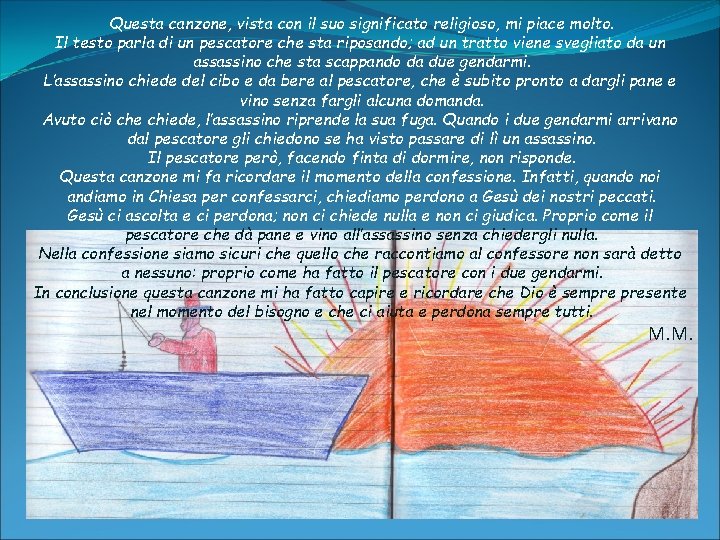 Questa canzone, vista con il suo significato religioso, mi piace molto.
Il testo parla di un pescatore che sta riposando; ad un tratto viene svegliato da un
assassino che sta scappando da due gendarmi.
L’assassino chiede del cibo e da bere al pescatore, che è subito pronto a dargli pane e
vino senza fargli alcuna domanda.
Avuto ciò che chiede, l’assassino riprende la sua fuga. Quando i due gendarmi arrivano
dal pescatore gli chiedono se ha visto passare di lì un assassino.
Il pescatore però, facendo finta di dormire, non risponde.
Questa canzone mi fa ricordare il momento della confessione. Infatti, quando noi
andiamo in Chiesa per confessarci, chiediamo perdono a Gesù dei nostri peccati.
Gesù ci ascolta e ci perdona; non ci chiede nulla e non ci giudica. Proprio come il
pescatore che dà pane e vino all’assassino senza chiedergli nulla.
Nella confessione siamo sicuri che quello che raccontiamo al confessore non sarà detto
a nessuno: proprio come ha fatto il pescatore con i due gendarmi.
In conclusione questa canzone mi ha fatto capire e ricordare che Dio è sempre presente
nel momento del bisogno e che ci aiuta e perdona sempre tutti.
M.M.